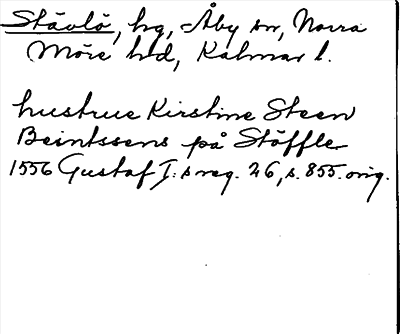 Stävlö, hg, Åby sn, Norra
Möre hd, Kalmar l.
hustrue Kirstine Steen
Beintssens på Stöffle
1556 Gustaf I:s reg. 26, s. 855. orig.